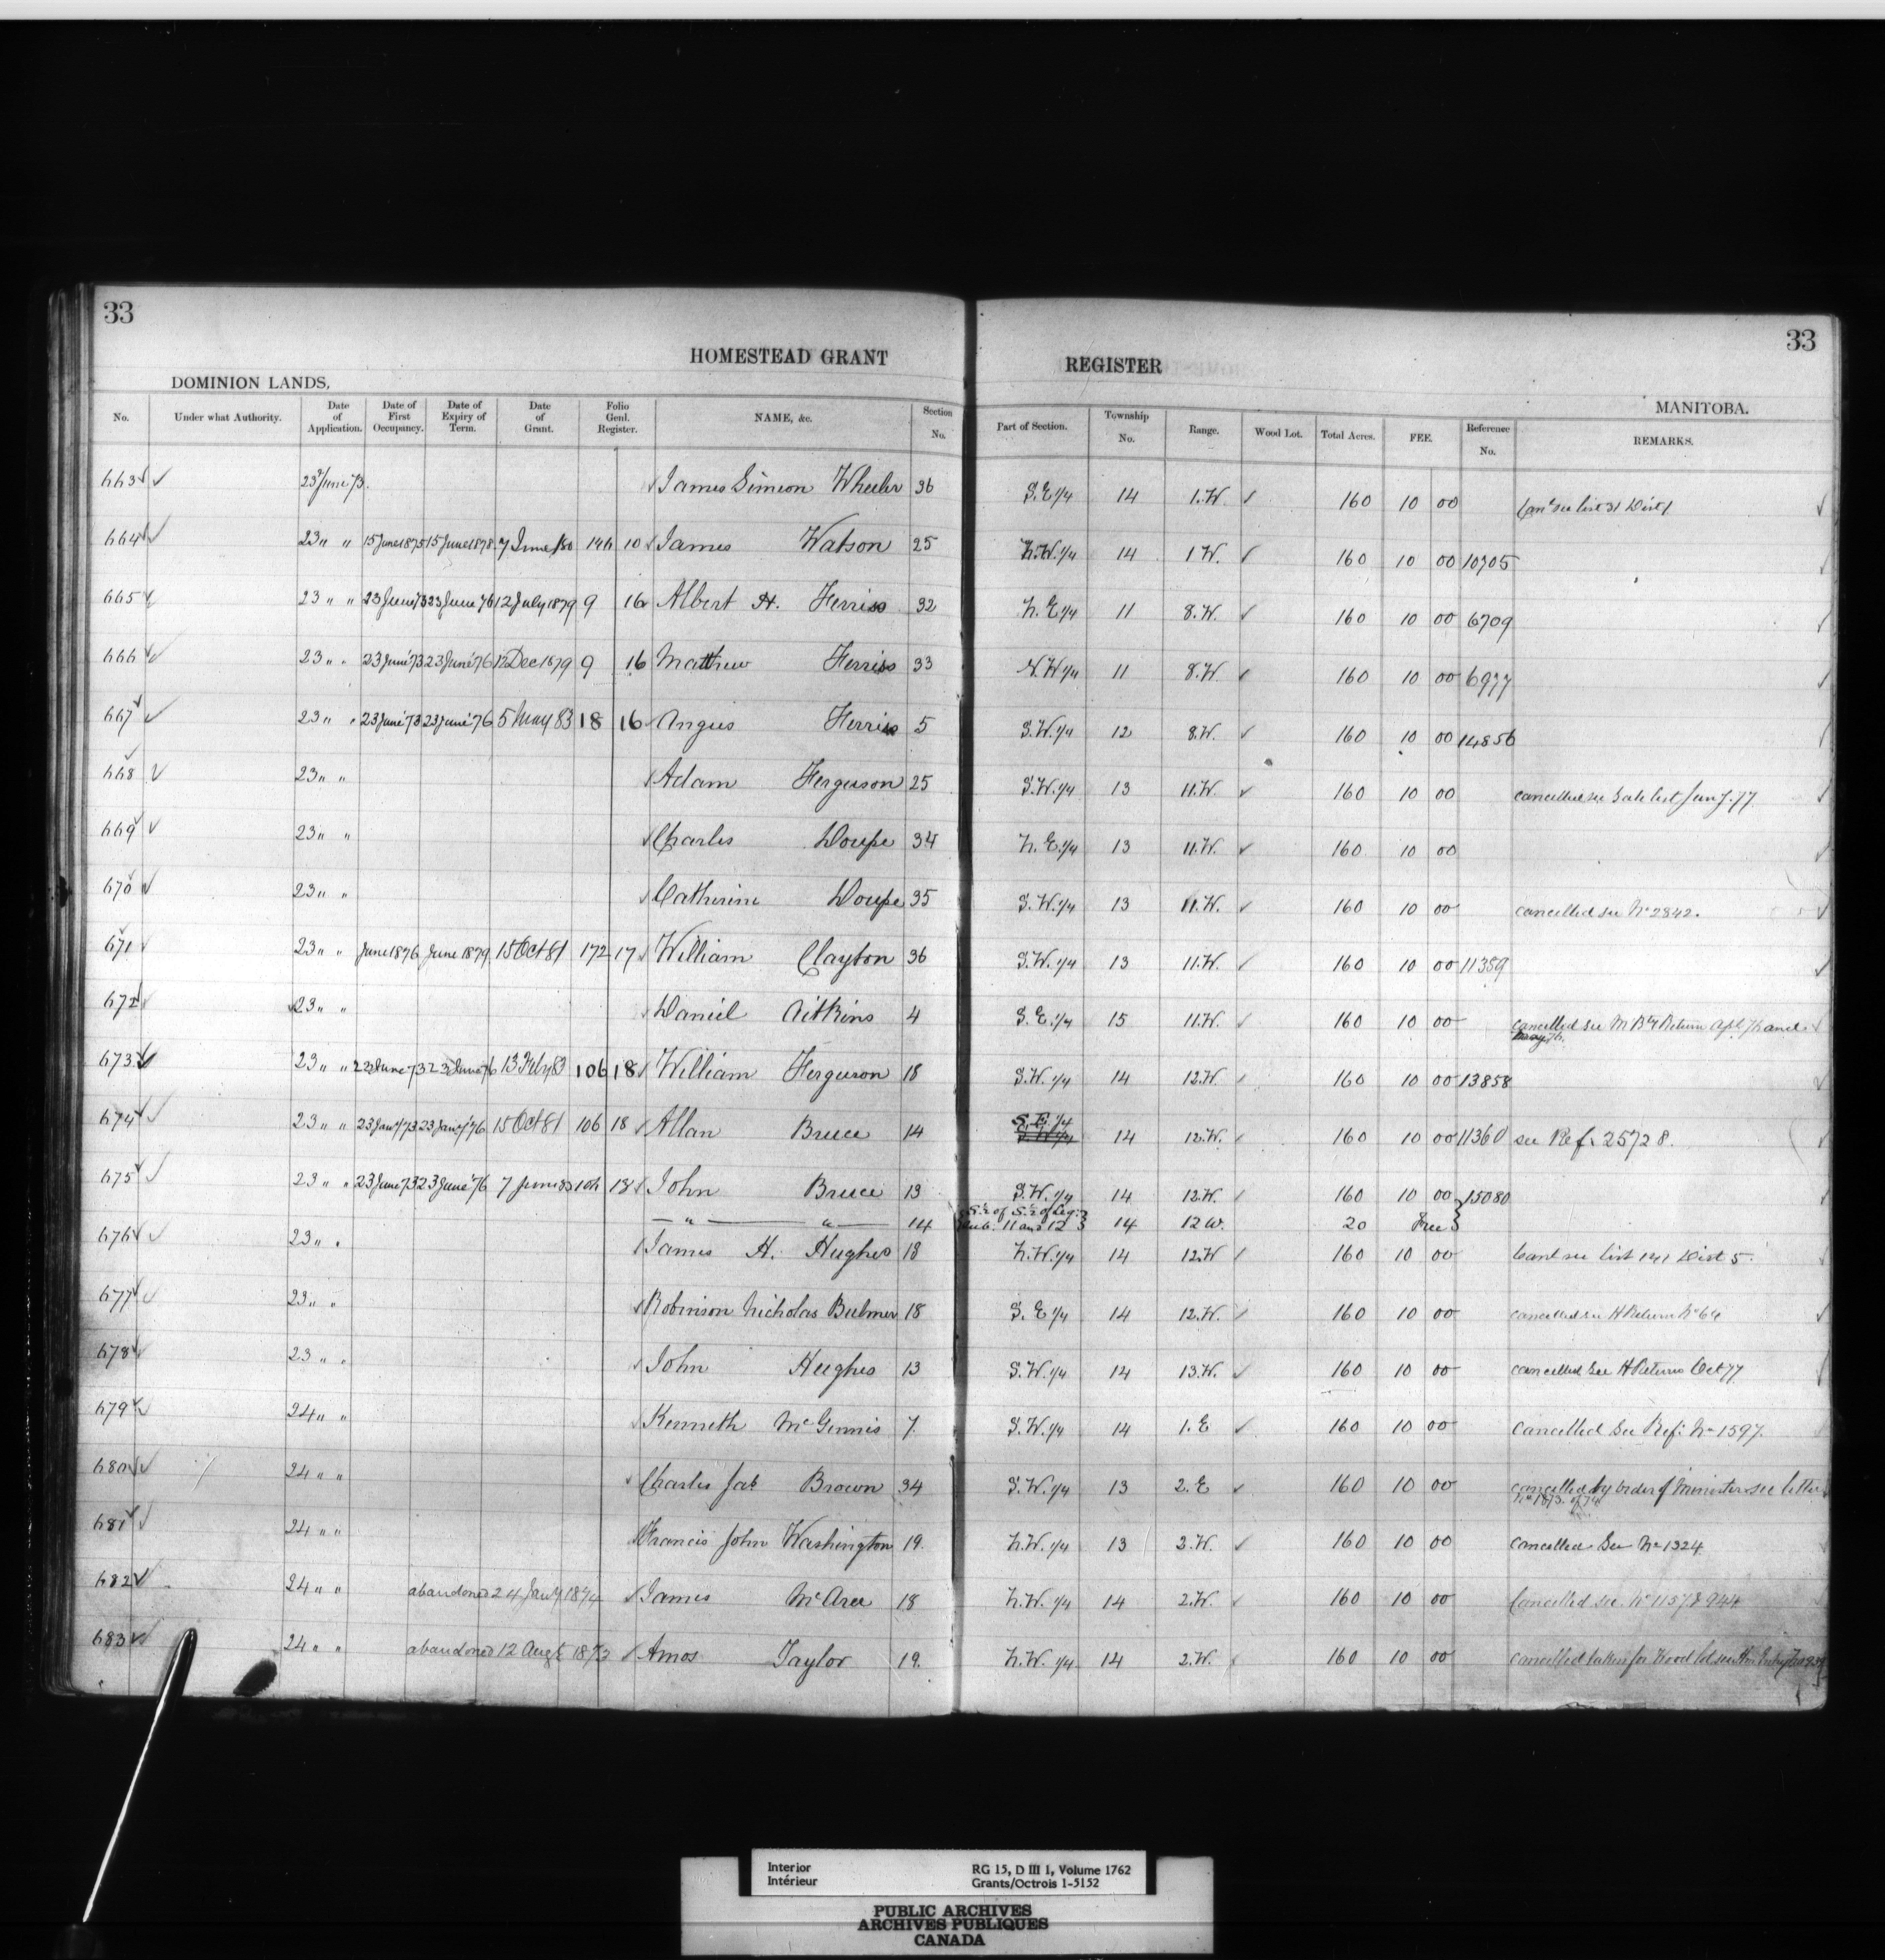 33
33
HOMESTEAD GRANT REGISTER
DOMINION LANDS.
MANITOBA.
No. Under what Authority. Date of Application. Date of First Occupancy. Date of Expiry of Term. Date of Grant. Folio Genl. Register. NAME, &c. Section No. Part of Section. Township No. Range. Wood Lot. Total Acres. FEE. Reference No. REMARKS.
663 23 June 73. James Simeon Wheeler 36 S.E 1/4 14 1.W. 160 10 00 see list 31 Dist 1
664 23 " " 15 June 1875 15 June 1878 7 June /80 146 10 James Watson 25 N.W. 1/4 14 1 W. 160 10 00 10705
665 23 " " 23 June 73 23 June 76 12 July 1879 9 16 Albert H. Ferriss 32 N. E 1/4 11 8.W. 160 10 00 6709
666 23 " " 23 June 73 23 June 76 12 Dec 1879 9 16 Matthew Ferriss 33 N.W 1/4 11 8.W. 160 10 00 6977
667 23 " " 23 June 73 23 June 76 5 May 83 18 16 Angus Ferriss 5 S.W. 1/4 12 8.W. 160 10 00 14856
668 23 " " Adam Ferguson 25 S.W. 1/4 13 11.W. 160 10 00 cancelled see Sale list 77
669 23 " " Charles Doupe 34 N. E. 1/4 13 11.W. 160 10 00
670 23 " " Catherine Doupe 35 S.W. 1/4 13 11.W. 160 10 00 cancelled see No 2842.
671 23 " " June 1876 June 1879 15 Oct 81 172 17 William Clayton 36 S.W. 1/4 13 11.W. 160 10 00 11359
672 23 " " Daniel Aitkins 4 S. E. 1/4 15 11.W. 160 10 00 cancelled see Return Apl. 76 and May 76.
673 23 " " 23 June 73 23 June 76 13 Feby 83 106 18 William Ferguson 18 S.W. 1/4 14 12.W. 160 10 00 13858
674 23 " " 23 Jany 73 23 Jany 76 15 Oct 81 106 18 Allan Bruce 14 S.E. 1/4 14 12.W. 160 10 00 11360 see Ref. 25728.
675 23 " " 23 June 73 23 June 76 7 June 83 106 18 John Bruce 13 S.W. 1/4 14 12.W. 160 10 00 15080
— " — " — 14 S.½ of S.½ of Leg. Sub. 11 and 12 14 12 W. 20 Free
676 23 " " James H. Hughes 18 N.W. 1/4 14 12.W 160 10 00 Canl see list 141 Dist 5.
677 23 " " Robinson Nicholas Bulmer 18 S. E 1/4 14 12.W. 160 10 00 cancelled see H Return No 64
678 23 " " John Hughes 13 S.W. 1/4 14 13.W. 160 10 00 cancelled See H Returns Oct 77
679 24 " " Kenneth McGinnis 7. S.W. 1/4 14 1. E 160 10 00 Cancelled See Ref: No 1597.
680 24 " " Charles Jab Brown 34 S.W. 1/4 13 2. E 160 10 00 cancelled by order of Minister see letter No 1873 of 74
681 24 " " Francis John Washington 19. N.W. 1/4 13 2.W. 160 10 00 cancelled See No 1324
682 24 " " abandoned 24 Jany 1874 James McAree 18 N.W. 1/4 14 2.W. 160 10 00 Cancelled see No 1157 & 944
683 24 " " abandoned 12 Augt 1873 Amos Taylor 19. N.W. 1/4 14 2.W. 160 10 00 cancelled taken for Wood lot see
Interior
Intérieur
RG 15, D III 1, Volume 1762
Grants/Octrois 1-5152
PUBLIC ARCHIVES
ARCHIVES PUBLIQUES
CANADA